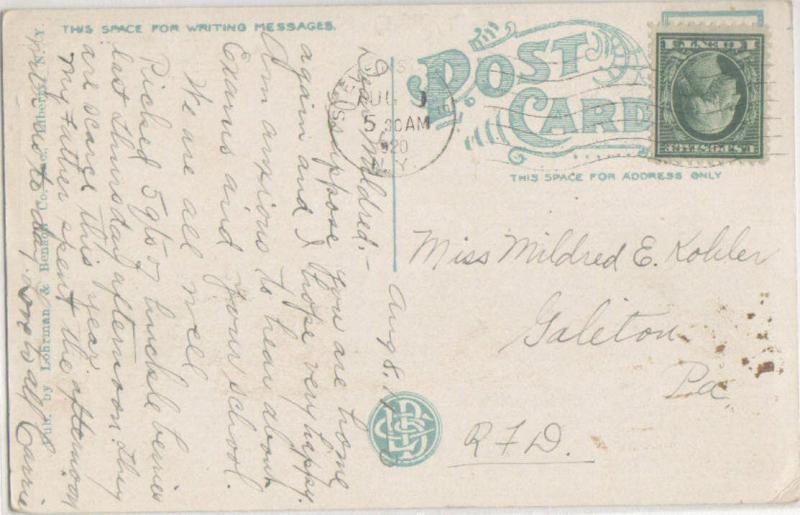 THIS SPACE FOR WRITING MESSAGES.
POST CARD
THIS SPACE FOR ADDRESS ONLY
1 CENT 1
U.S. POSTAGE
5 30 AM
1920
N.Y.
Aug 8,
Dear Mildred:-
Suppose you are home
again and I hope very happy.
Am anxious to hear about
Exams and your school.
We are all well
Picked 5 qts of huckle berries
last Thursday afternoon. They
are scarce this year.
My Father spent the afternoon
with us to day. Love to all Carrie
Miss Mildred E. Kohler
Galeton
Pa
R.F.D.
Pub. by Lohrman & Benson Co., N. Y.